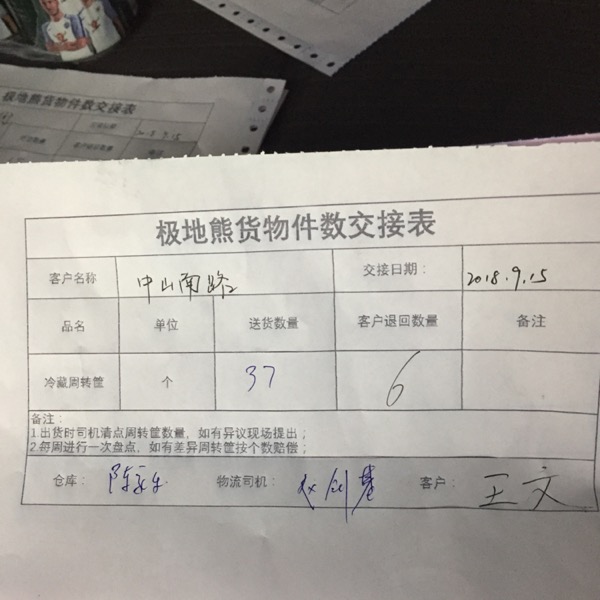 极地熊货物件数交接表
2018.9.15
极地熊货物件数交接表
客户名称 中山南路2 交接日期： 2018.9.15
品名 单位 送货数量 客户退回数量 备注
冷藏周转筐 个 37 6
备注：
1.出货时司机清点周转筐数量，如有异议现场提出；
2.每周进行一次盘点，如有差异周转筐按个数赔偿；
仓库： 物流司机： 客户： 王文